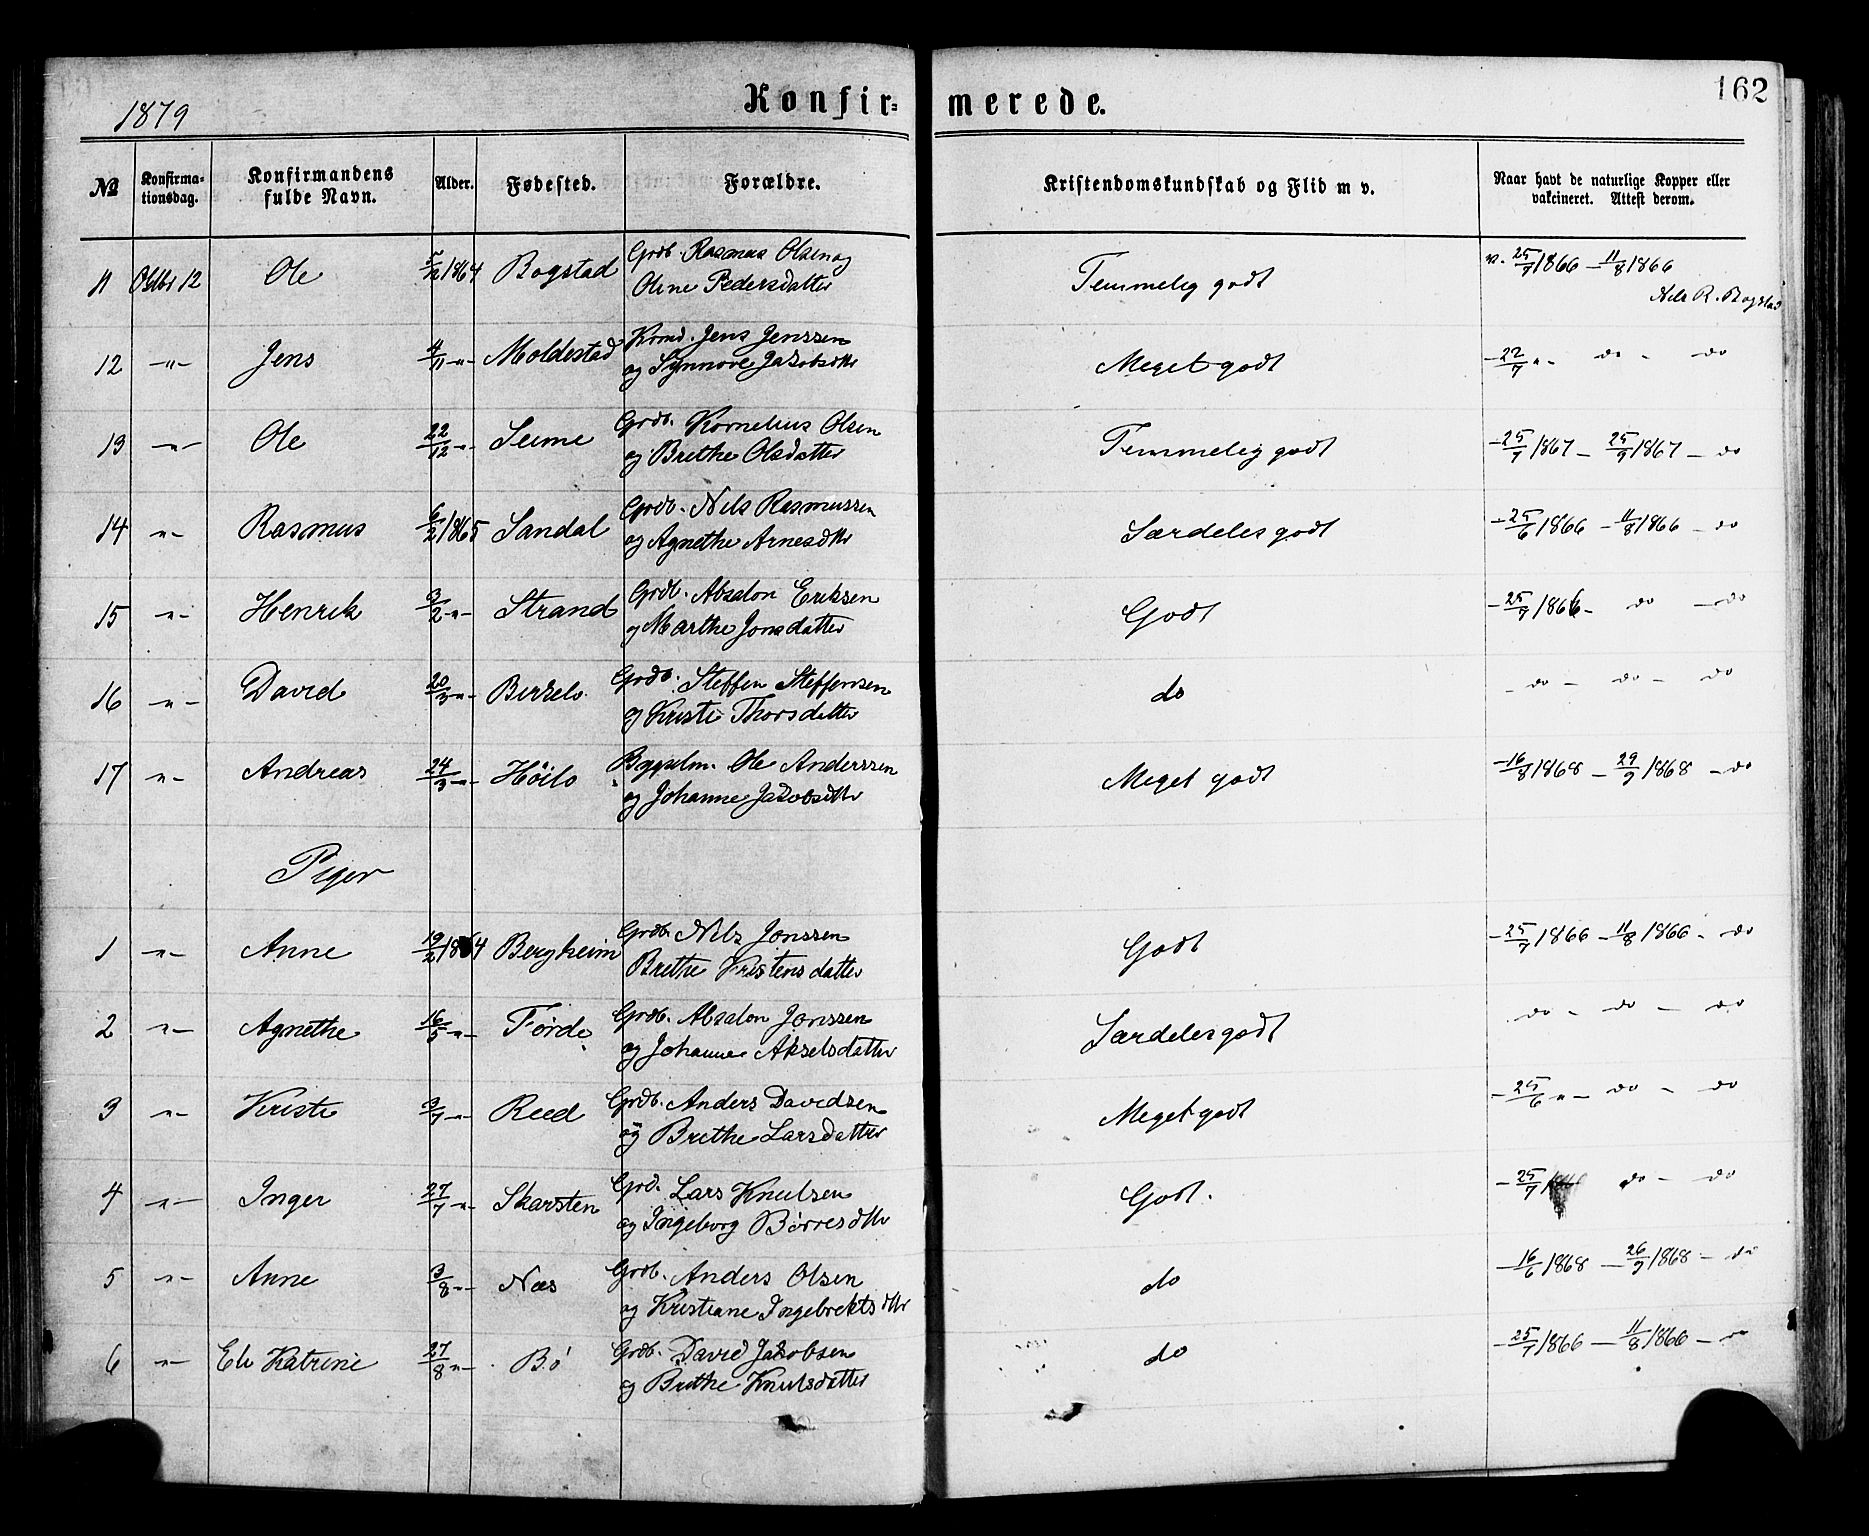 1879
Konfir-
merede.
162
№
Konfirma-
tionsdag.
Konfirmandens
fulde Navn.
Alder.
Fødested.
Forældre.
Kristendomskundskab og Flid m v.
Naar havt de naturlige Kopper eller
vakcineret. Attest derom.
11 Oktbr 12 Ole 5/12 1864 Bogstad Grdb. Rasmus Olsen og Temmelig godt v. 25/7 1866 – 11/8 1866
Oline Pedersdatter Nils R. Bogstad
12 –"– Jens 4/11 –"– Moldestad Kbmd. Jens Jenssen Meget godt – 22/7 " – do – do
og Synnove Jakobsdttr
13 –"– Ole 22/12 –"– Seime Grdb. Kornelius Olsen Temmelig godt – 25/7 1867 – 25/9 1867 – do
og Brithe Olsdatter
14 –"– Rasmus 6/2 1865 Sandal Grdb. Nils Rasmussen Særdeles godt – 25/6 1866 – 11/8 1866 – do
og Agnethe Arnesdttr
15 –"– Henrik 3/2 –"– Strand Grdb. Absalon Eriksen Godt – 25/7 1866 – do – do
og Marthe Jonsdatter
16 –"– David 20/3 –"– Birkelo Grdb. Steffen Steffensen do – do – do – do
og Kristi Thorsdatter
17 –"– Andreas 24/3 –"– Höilo Bygselm. Ole Anderssen Meget godt – 16/8 1868 – 29/9 1868 – do
og Johanne Jakobsdttr
Piger
1 –"– Anne 19/2 1864 Bergheim Grdb. Nils Jonssen Godt – 25/7 1866 – 11/8 1866 – do
Brithe Kristensdatter
2 –"– Agnethe 16/5 –"– Førde Grdb. Absalon Jonssen Særdeles godt do – do – do
og Johanne Akselsdatter
3 –"– Kristi 9/7 –"– Reed Grdb. Anders Davidsen Meget godt – 25/6 " – do – do
og Brithe Larsdatter
4 –"– Inger 27/7 –"– Skarsten Grd. Lars Knutsen Godt. – 25/7 do – do
og Ingeborg Børresdttr
5 –"– Anne 3/8 –"– Næs Grdb. Anders Olsen do – 16/6 1868 – 26/9 1868 – do
og Kristiane Ingebrektsdttr
6 –"– Eli Katrine 27/8 –"– Bø Grdb. David Jakobsen do – 25/7 1866 – 11/8 1866 – do
og Brithe Knutsdatter